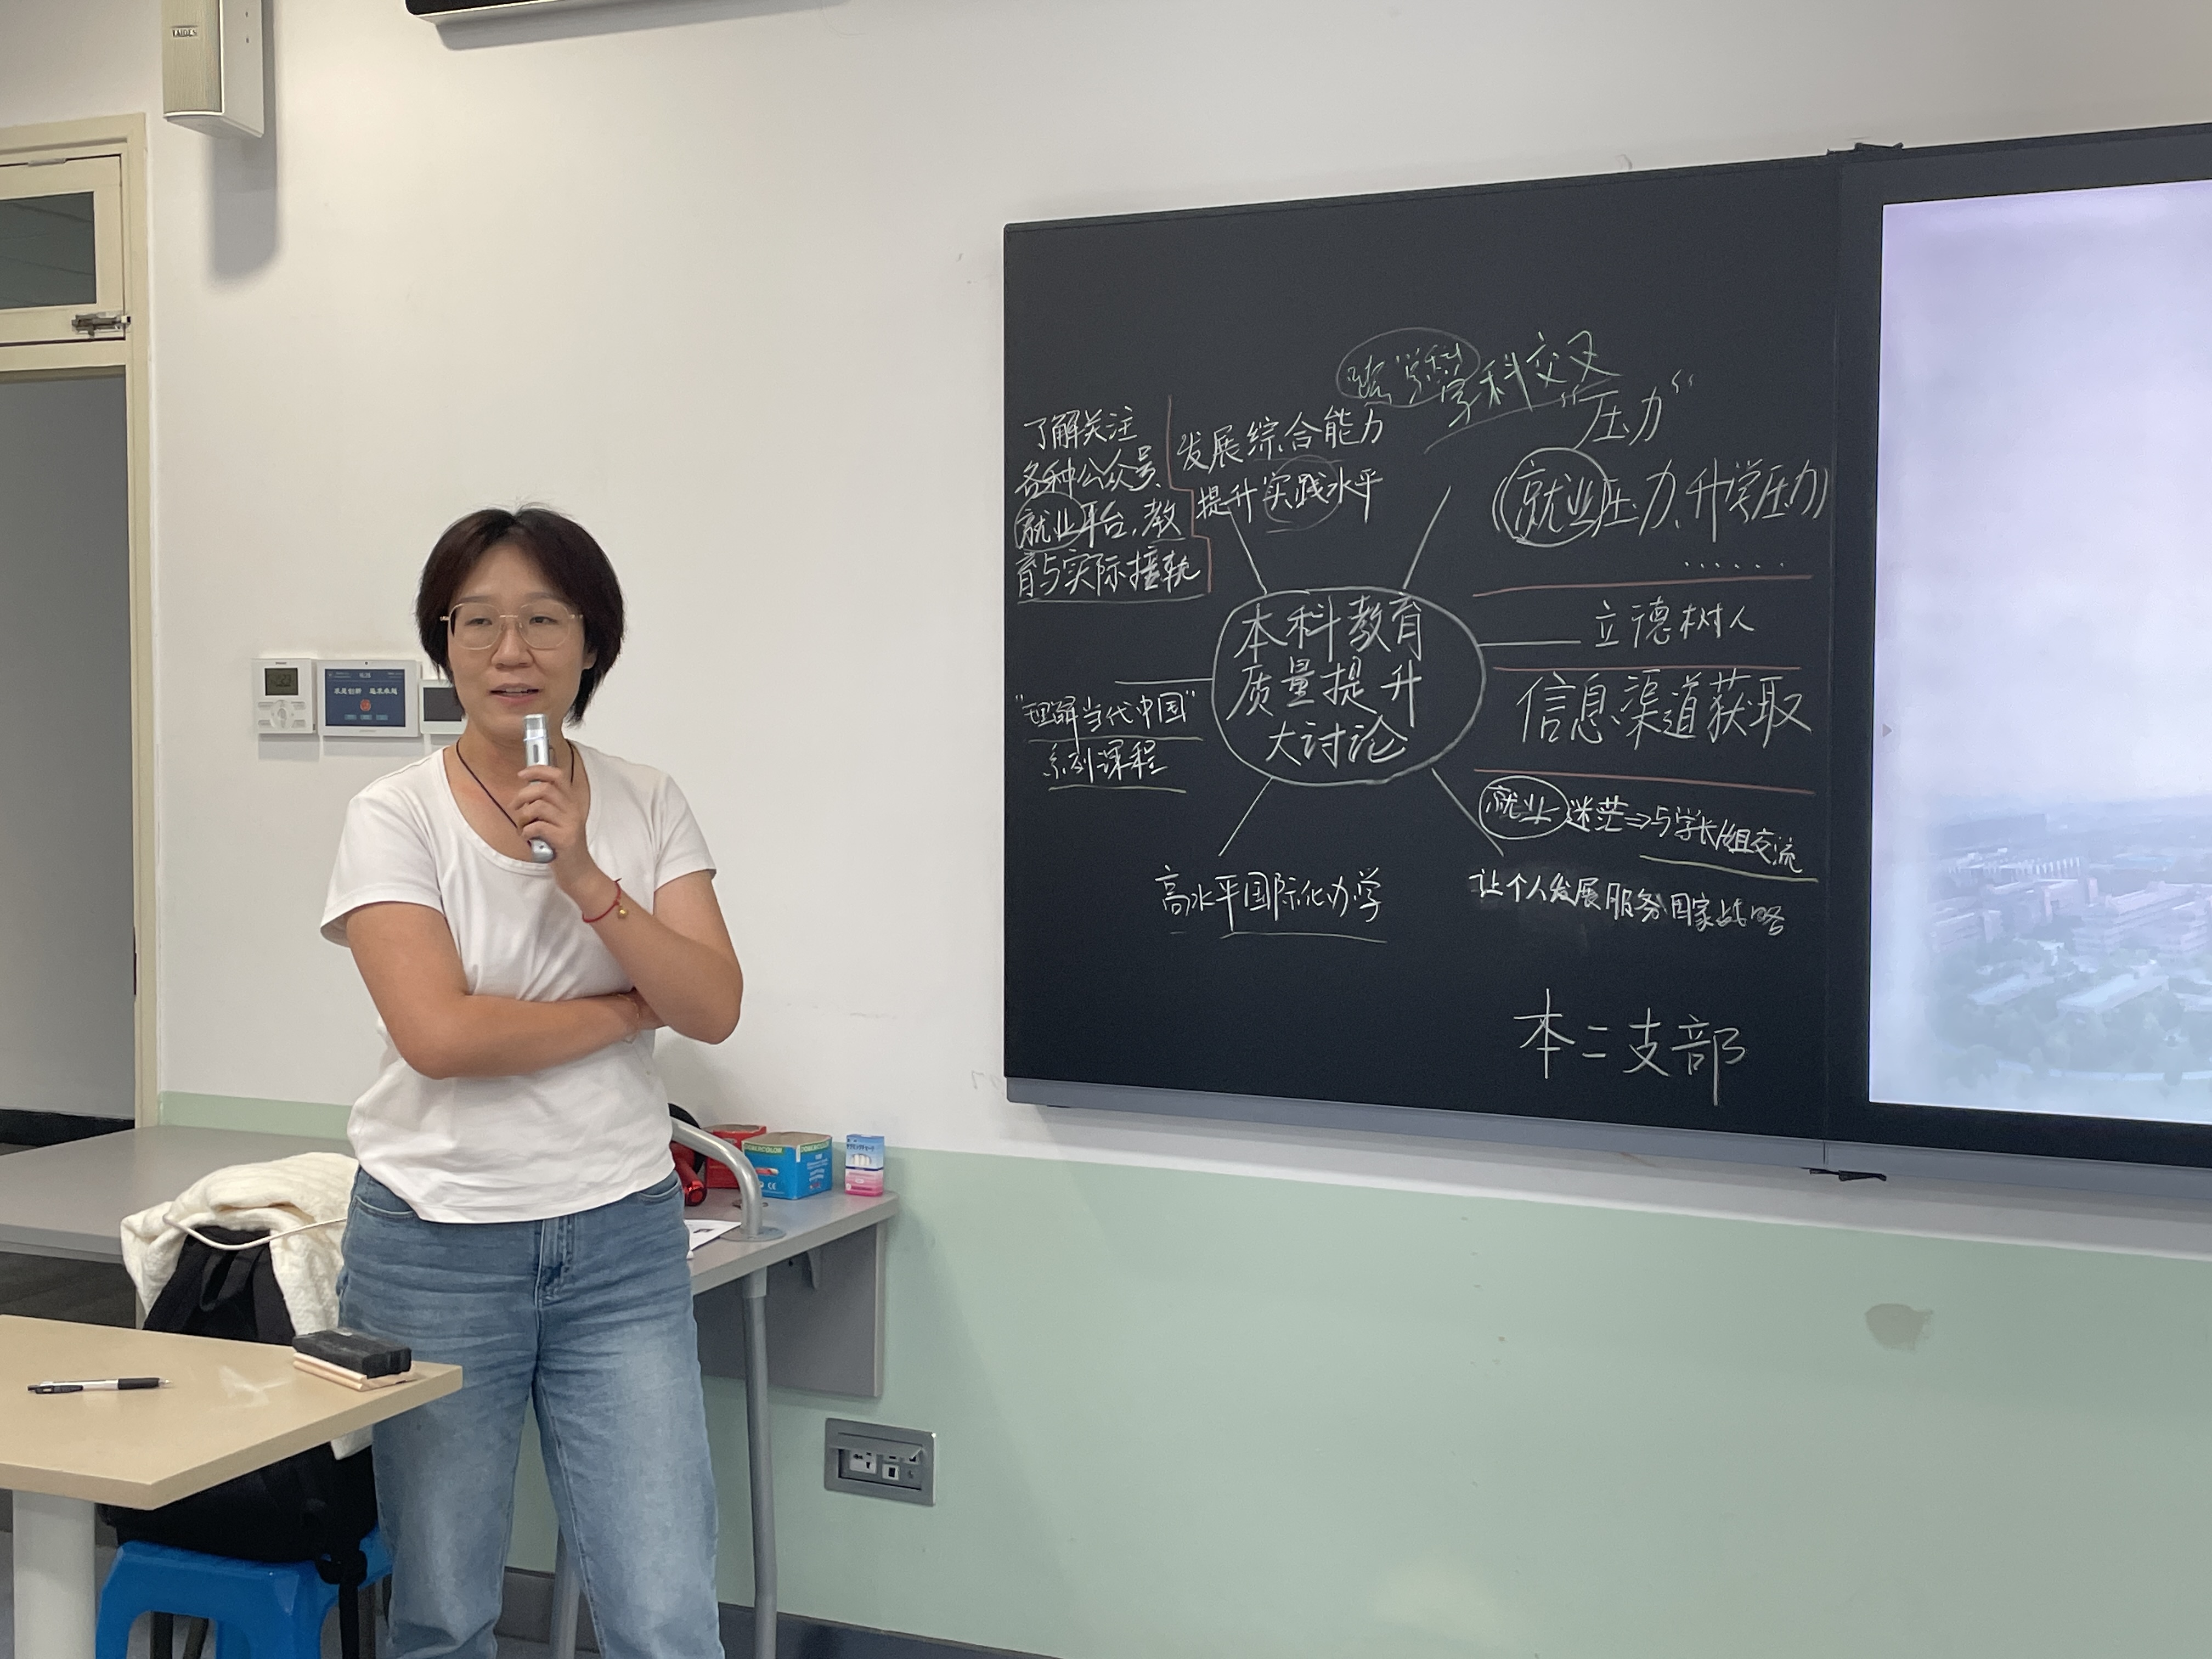 TAIDEN
跨学科
学科交叉
"压力"
了解关注
各种公众号、
就业平台，教
育与实际接轨
发展综合能力
提升实践水平
（就业压力、升学压力）
……
本科教育
质量提升
大讨论
立德树人
信息渠道获取
"理解当代中国"
系列课程
就业迷茫⇒与学长/姐交流
高水平国际化办学
让个人发展服务国家战略
本二支部
求是创新 追求卓越